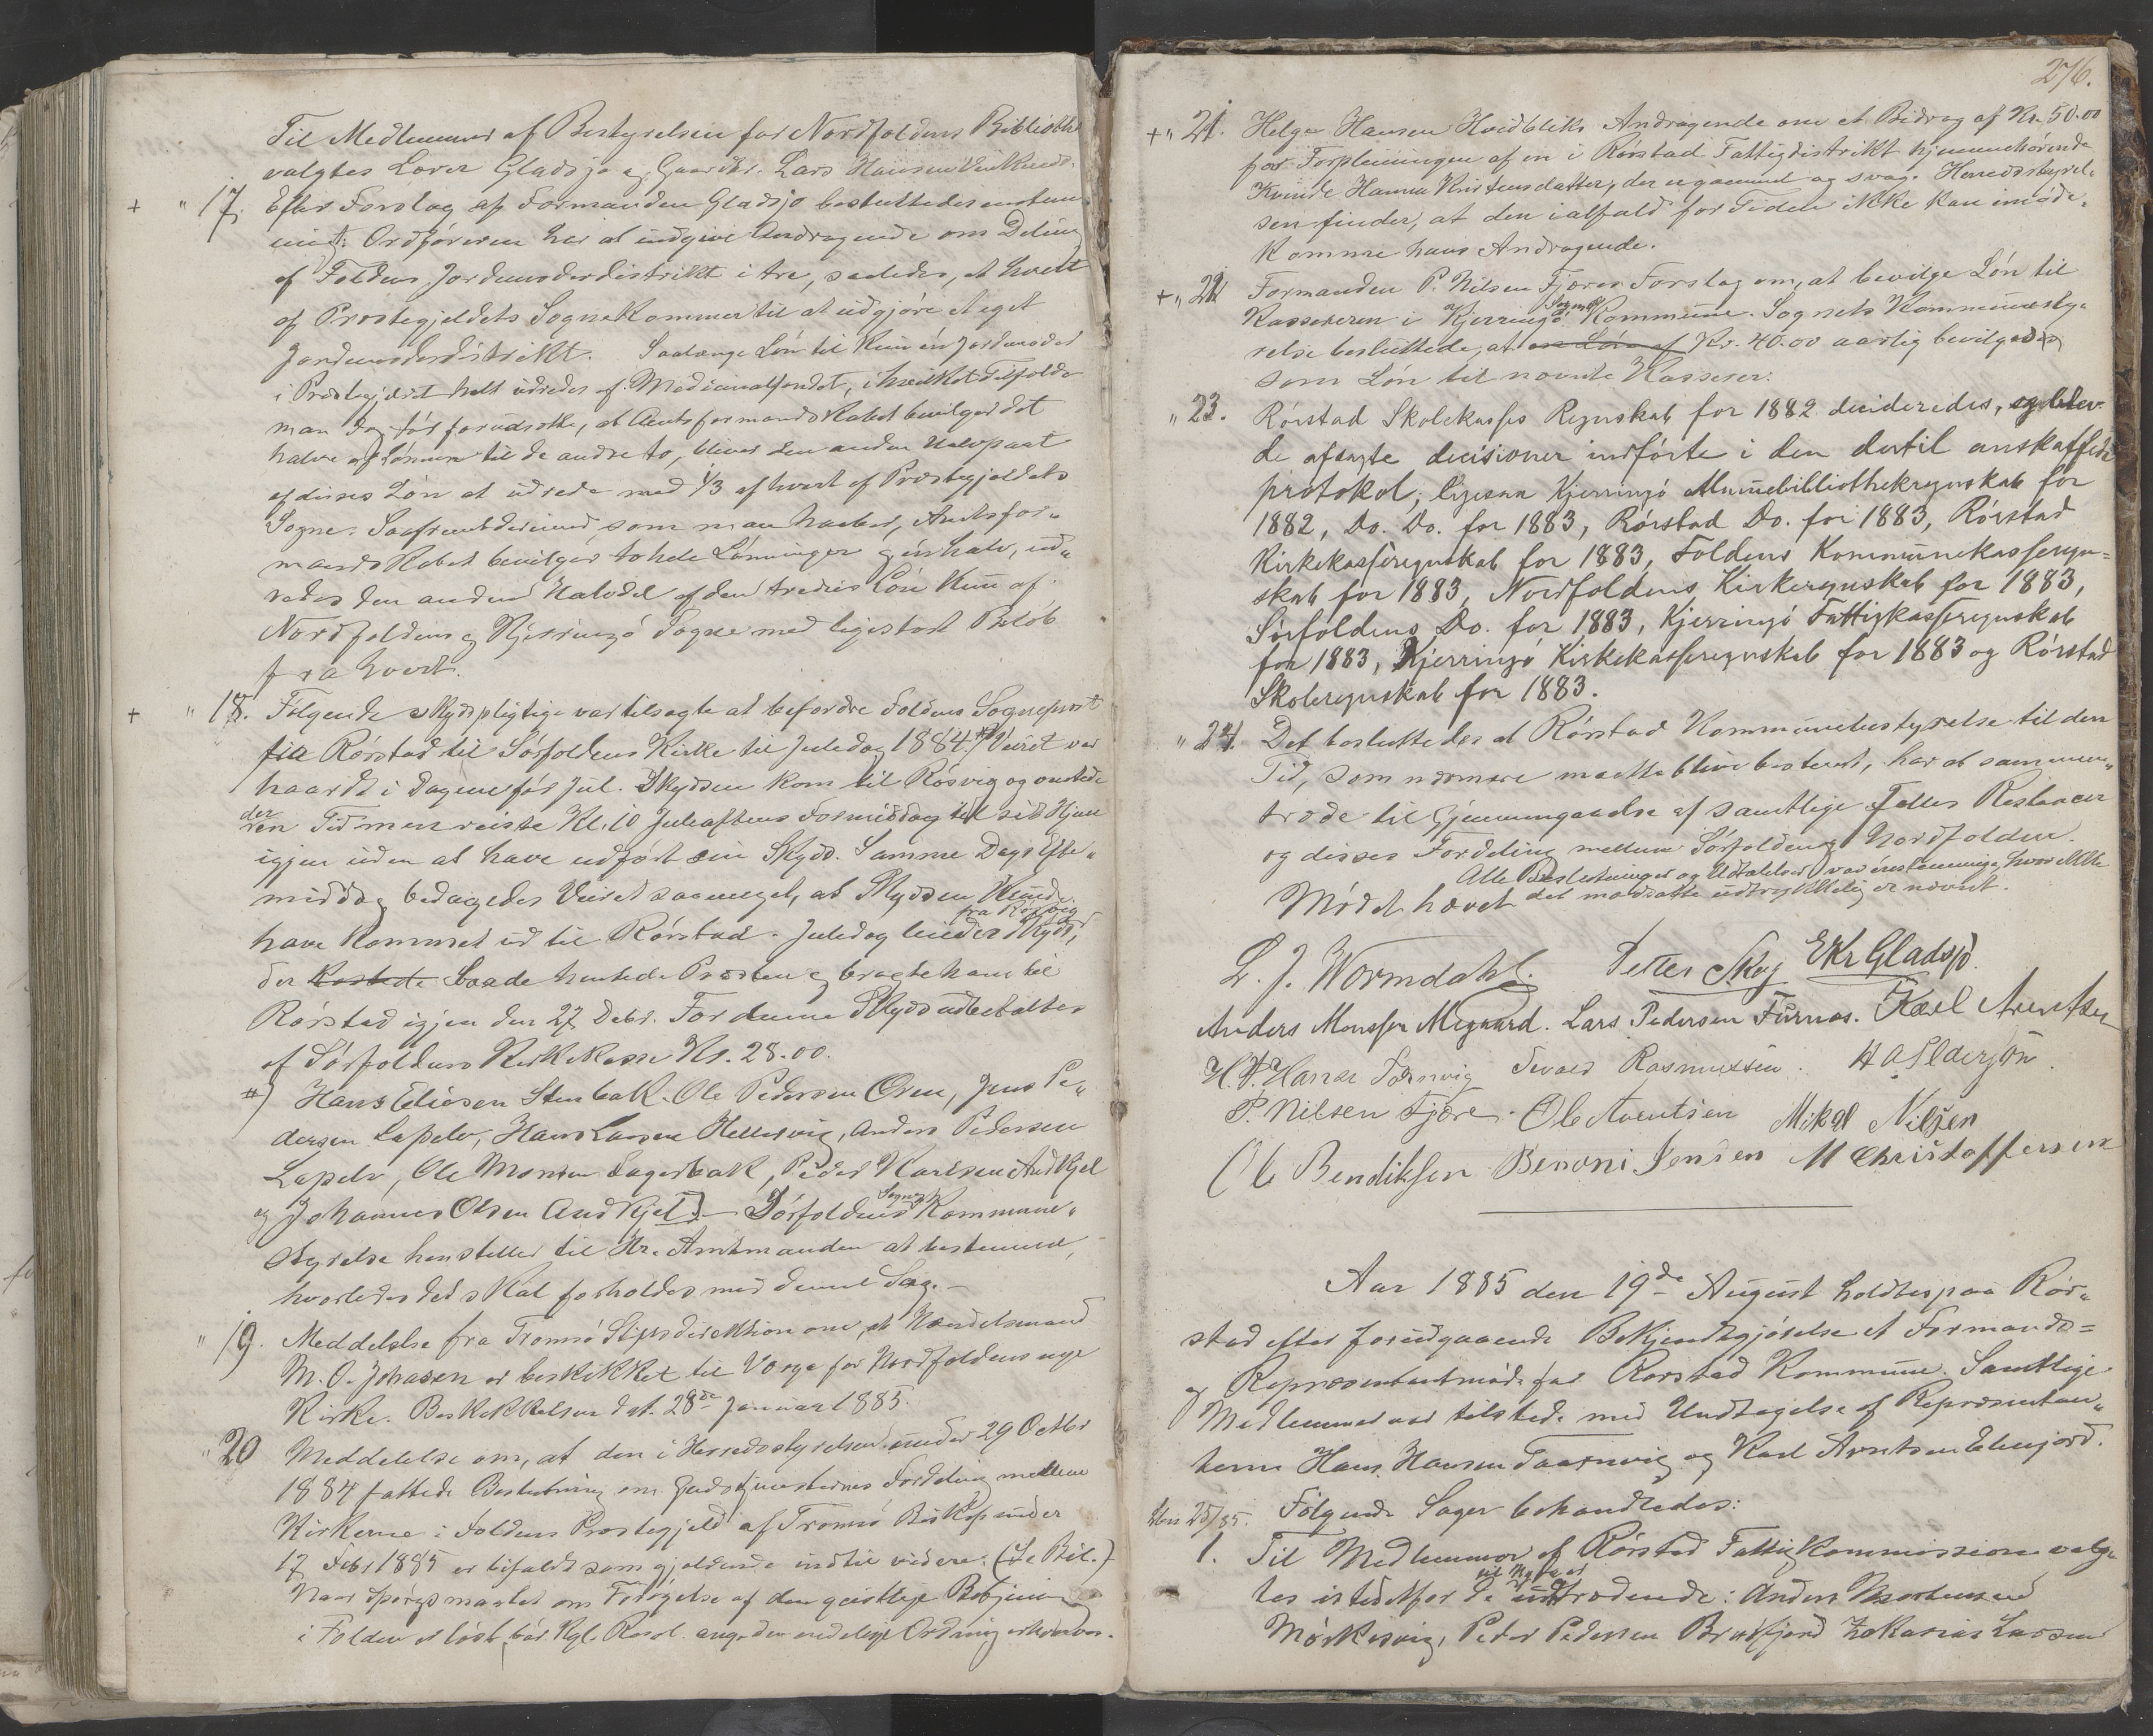 Til Medlemmer af Bestyrelsen for Nordfoldens Biblioth
valgtes Lærer Gladsjø og Gaardbr. Lars Hansen
+ " 17. Efter Forslag af Formanden Gladsjø besluttedes enstem
migt: Ordføreren har at indgive Andragende om Deling
af Foldens Jordemoderdistrikt i tre, saaledes, at hvert
af Præstegjeldets Sogne kommer til at udgjøre et eget
Jordemoderdistrikt. Saalænge Løn til kun én Jordmoder
i Præstegjeldet helt udredes af Medicinalfondet, i hvilket Tilfælde
man dog tør forudsætte, at Amtsformandskabet bevilger det
halve af Lønnen til de andre to, bliver den anden Halvpart
af disses Løn at udrede med 1/3 af hvert af Præstegjeldets
Sogne. Saafremt derimod, som man haaber, Amtsfor„
mandskabet bevilger to hele Lønninger og én halv, ud„
redes den anden Halvdel af den tredies Løn kun af
Nordfoldens og Kjerringø Sogne med ligestort Beløb
fra hvert.
+ " 18. Følgende skydspligtige var tilsagte at befordre Foldens Sogneprest
fra Rørstad til Sørfoldens Kirke til Juledag 1884. #) Veiret var
haardt i Dagene før Jul. Skydsen kom til Røsvig og ventede
der en Tid men reiste Kl. 10 Juleaftens Formiddag til sit Hjem
igjen uden at have udført sin Skyds. Samme Dags Efter„
middag bedagedes Veiret saameget, at Skydsen kunde
have kommet ud til Rørstad. Juledag leiedes fra Røsvig Skyds,
der kostede baade hentede Præsten og bragte ham til
Rørstad igjen den 27 Debr. For denne Skyds udbetaltes
af Sørfoldens Kirkekasse Kr. 28.00.
#) Hans Eliesen Stenbak. Ole Pedersen Osen, Jens Pe„
dersen Lapelv, Hans Larsen Hellesvig, Anders Pedersen
Lapelv, Ole Monsen Lagerbak, Peder Karlsen Andkjel
og Johannes Olsen Andkjel). – Sørfoldens Sogns Kommune„
styrelse henstiller til Hr. Amtmanden at bestemme,
hvorledes det skal forholdes med denne Sag. –
" 19. Meddelelse fra Tromsø Stiftsdirektion om, at Handelsmand
M. O. Johasen er beskikket til Værge for Nordfoldens nye
Kirke. Beskikkelsen dat. 28de Januar 1885.
" 20 Meddelelse om, at den i Herredsstyrelsen under 29 Octbr
1884 fattede Beslutning om Gudstjenesternes Fordeling mellem
Kirkerne i Foldens Prestegjeld af Tromsø Biskop under
17 Febr 1885 er bifaldt som gjeldende indtil videre. (Se Bil.)
Naar Spørgsmaalet om Forøgelse af den geistlige Betjening
i Folden er løst, bør Kgl. Resol. ang. den endelige Ordning erhverves.
276.
+ " 21. Helge Hansen Hvidbliks Andragende om et Bidrag af Kr. 50.00
for Forpleiningen af en i Rørstad Fattigdistrikt hjemmehørende
Kvinde Hanna Kristensdatter, der er gammel og svag. Herredsstyrel„
sen finder, at den ialfald for Tiden ikke kan imøde„
komme hans Andragende.
+ " 22 Formanden P. Nilsen Fjæres Forslag om, at bevilge Løn til
Kassereren i Kjerringø Sogns Kommune. Sognets Kommunesty„
relse besluttede, at en Løn af Kr. 40.00 aarlig bevilgedes
som Løn til nævnte Kasserer.
" 23. Rørstad Skolekasses Regnskab for 1882 decideredes, og blev
de afsagte decisioner indførte i den dertil anskaffede
protokol, ligesaa Kjerringø Almuebibliothekregnskab for
1882, Do. Do. for 1883, Rørstad Do. for 1883, Rørstad
Kirkekasseregnskab for 1883, Foldens Kommunekasseregn=
skab for 1883, Nordfoldens Kirkeregnskab for 1883,
Sørfoldens Do. for 1883, Kjerringø Fattigkasseregnskab
for 1883, Kjerringø Kirkekasseregnskab for 1883 og Rørstad
Skoleregnskab for 1883.
" 24. Det besluttedes at Rørstad Kommunebestyrelse til den
Tid, som nærmere maatte blive bestemt, har at sammen„
træde til Gjennemgaaelse af samtlige fælles Restancer
og disses Fordeling mellem Sørfolden og Nordfolden.
Alle Beslutninger og Udtalelser var énstemmige, hvor ikke
Mødet hævet det modsatte udtrykkelig er nævnt.
L. J. Wormdahl. Petter Skog EKr Gladsjø.
Anders Monssen Megaard. Lars Pedersen Furnes. Karl Arentsen
H. H. Hansen Tørnvig Sivard Rasmussen. H A Elderjøn
P. Nilsen Fjære. Ole Arentsen Mikal Nilsen
Ole Bendiksen Benoni Jensen M Christoffersen
Aar 1885 den 19de August holdtes paa Rør„
stad efter forudgaaende Bekjendtgjørelse et Formands=
og Repræsentantmøde for Rørstad Kommune. Samtlige
Medlemmer var tilstede med Undtagelse af Repræsentan„
terne Hans Hansen Taarnvig og Karl Arntsen Elvefjord.
25/85. Følgende Sager behandledes:
1. Til Medlemmer af Rørstad Fattigkommission valg„
tes istedetfor de til Nytaar udtrædende: Anders Mortensen
Mørkesvig, Peder Pedersen Bradfjord Zakarias Larsen